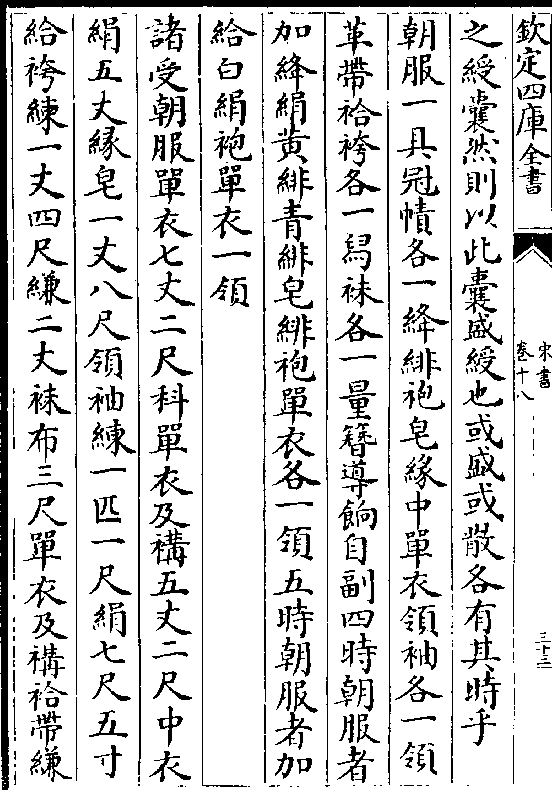 欽定四庫全書
宋書
卷十八
三十三
之綬囊然則以此囊盛綬也或盛或散各有其時乎
朝服一具冠幘各一絳緋袍皂緣中單衣領袖各一領
革帶袷袴各一舄袜各一量簪導餉自副四時朝服者
加絳絹黄緋青緋皂緋袍單衣各一領五時朝服者加
給白絹袍單衣一領
諸受朝服單衣七丈二尺科單衣及褠五丈二尺中衣
絹五丈緣皂一丈八尺領袖練一匹一尺絹七尺五寸
給袴練一丈四尺縑二丈袜布三尺單衣及褠袷帶縑